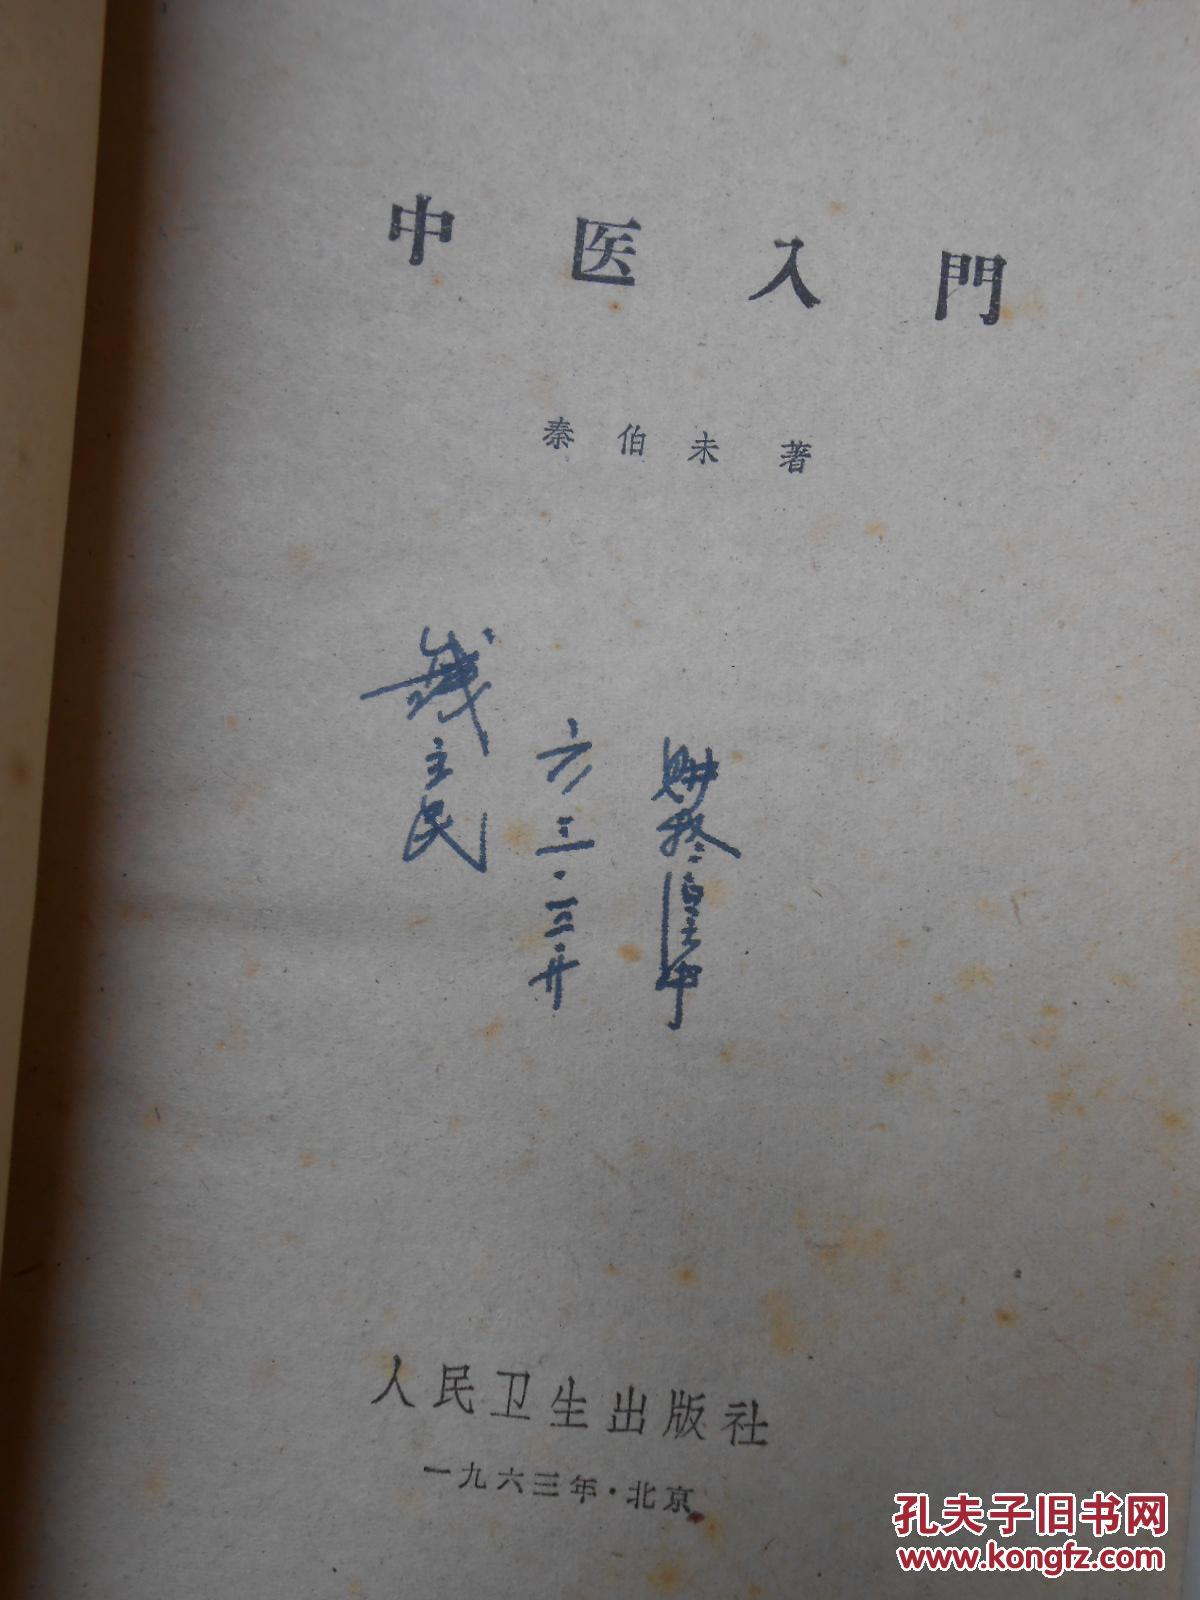 中医入門
秦伯未 著
钱主民
六三·三·廿
购于
人民卫生出版社
一九六三年·北京
孔夫子旧书网
www.kongfz.com